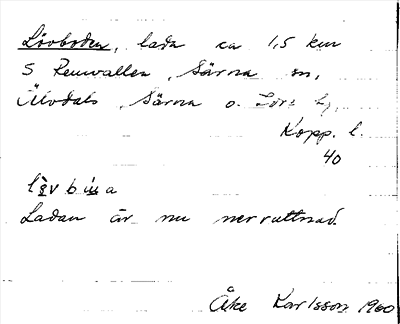 Lövboden, lada ca 1,5 km
S Renvallen, Särna sn,
Älvdals, Särna o. Idre t.
Kopp. l.
40
Ladan är nu nerruttnad.
Åke Karlsson 1960